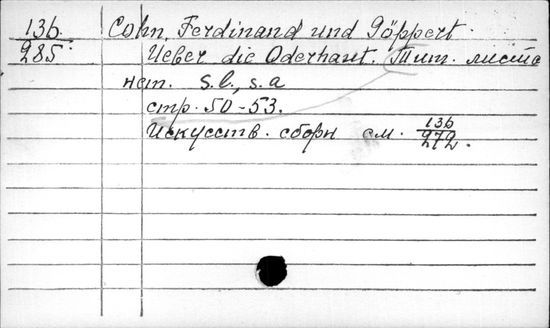 136. Cohn, Ferdinand und Göppert.
285. Ueber die Oderhaut. (Тит. листа
нет. s.l., s.a
стр. 50-53.
Искусств. сборн см. 136
272.